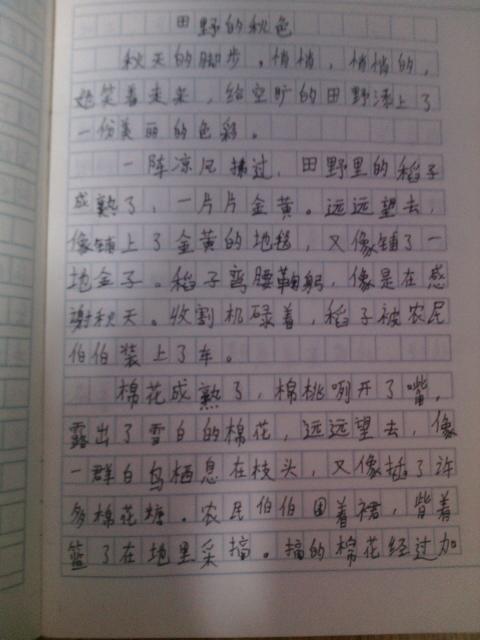 田野的秋色
秋天的脚步。悄悄,悄悄的,
她笑着走来,给空旷的田野添上了
一份美丽的色彩。
一阵凉风拂过,田野里的稻子
成熟了,一片片金黄。远远望去,
像铺上了金黄的地毯,又像铺了一
地金子。稻子弯腰鞠躬,像是在感
谢秋天。收割机碌着,稻子被农民
伯伯装上了车。
棉花成熟了,棉桃咧开了嘴,
露出了雪白的棉花,远远望去,像
一群白鸟栖息在枝头,又像插了许
多棉花糖。农民伯伯围着裙,背着
篮了在地里采摘。摘的棉花经过加